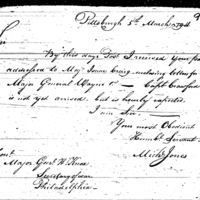 Pittsburgh 5th March 1794
Sir
By this days Post I received your
addressed to Maj. Isaac Craig enclosing letters for
Major General Wayne & Capt Crawford
is not yet arrived, but is hourly expected.
I am Sir
Your most Obedient
Hum. Servant
Mich Jones
Major Genl. H. Knox
Secretary of war
Philadelphia